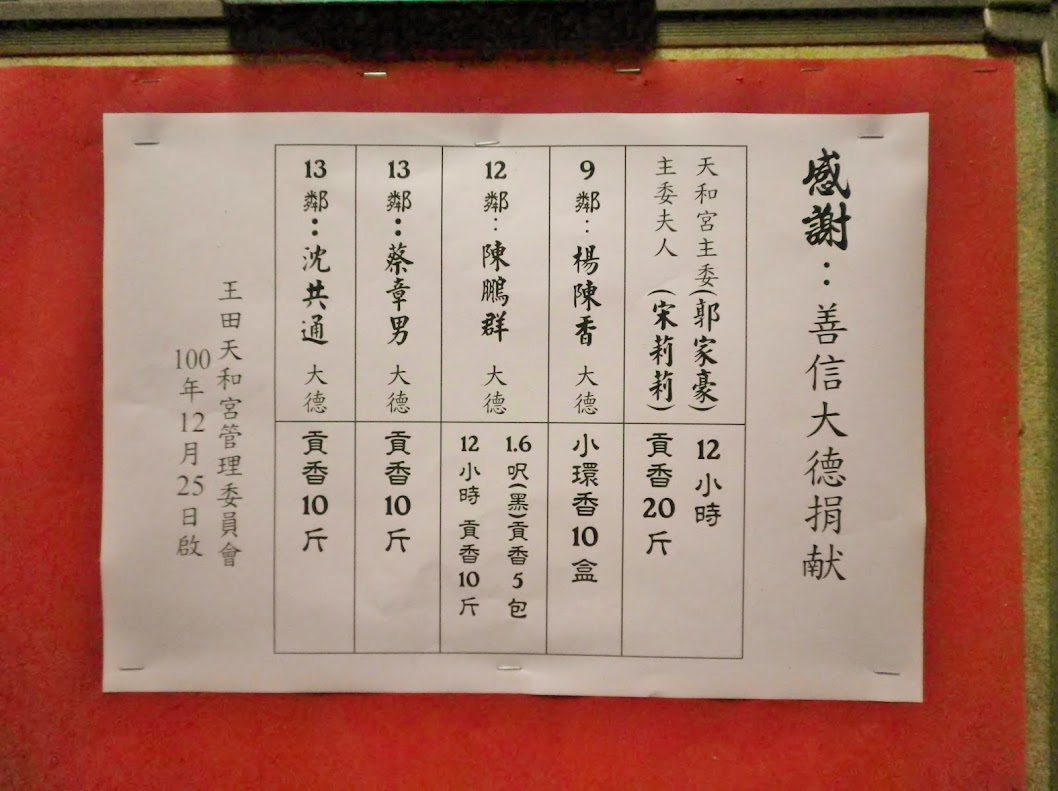 感謝：善信大德捐献
天和宮主委(郭家豪)
主委夫人（宋莉莉）
12小時
貢香20斤
9鄰：楊陳香 大德
小環香10盒
12鄰：陳鵬群 大德
1.6呎(黑)貢香5包
12小時 貢香10斤
13鄰：蔡章男 大德
貢香10斤
13鄰：沈共通 大德
貢香10斤
王田天和宮管理委員會
100年12月25日啟